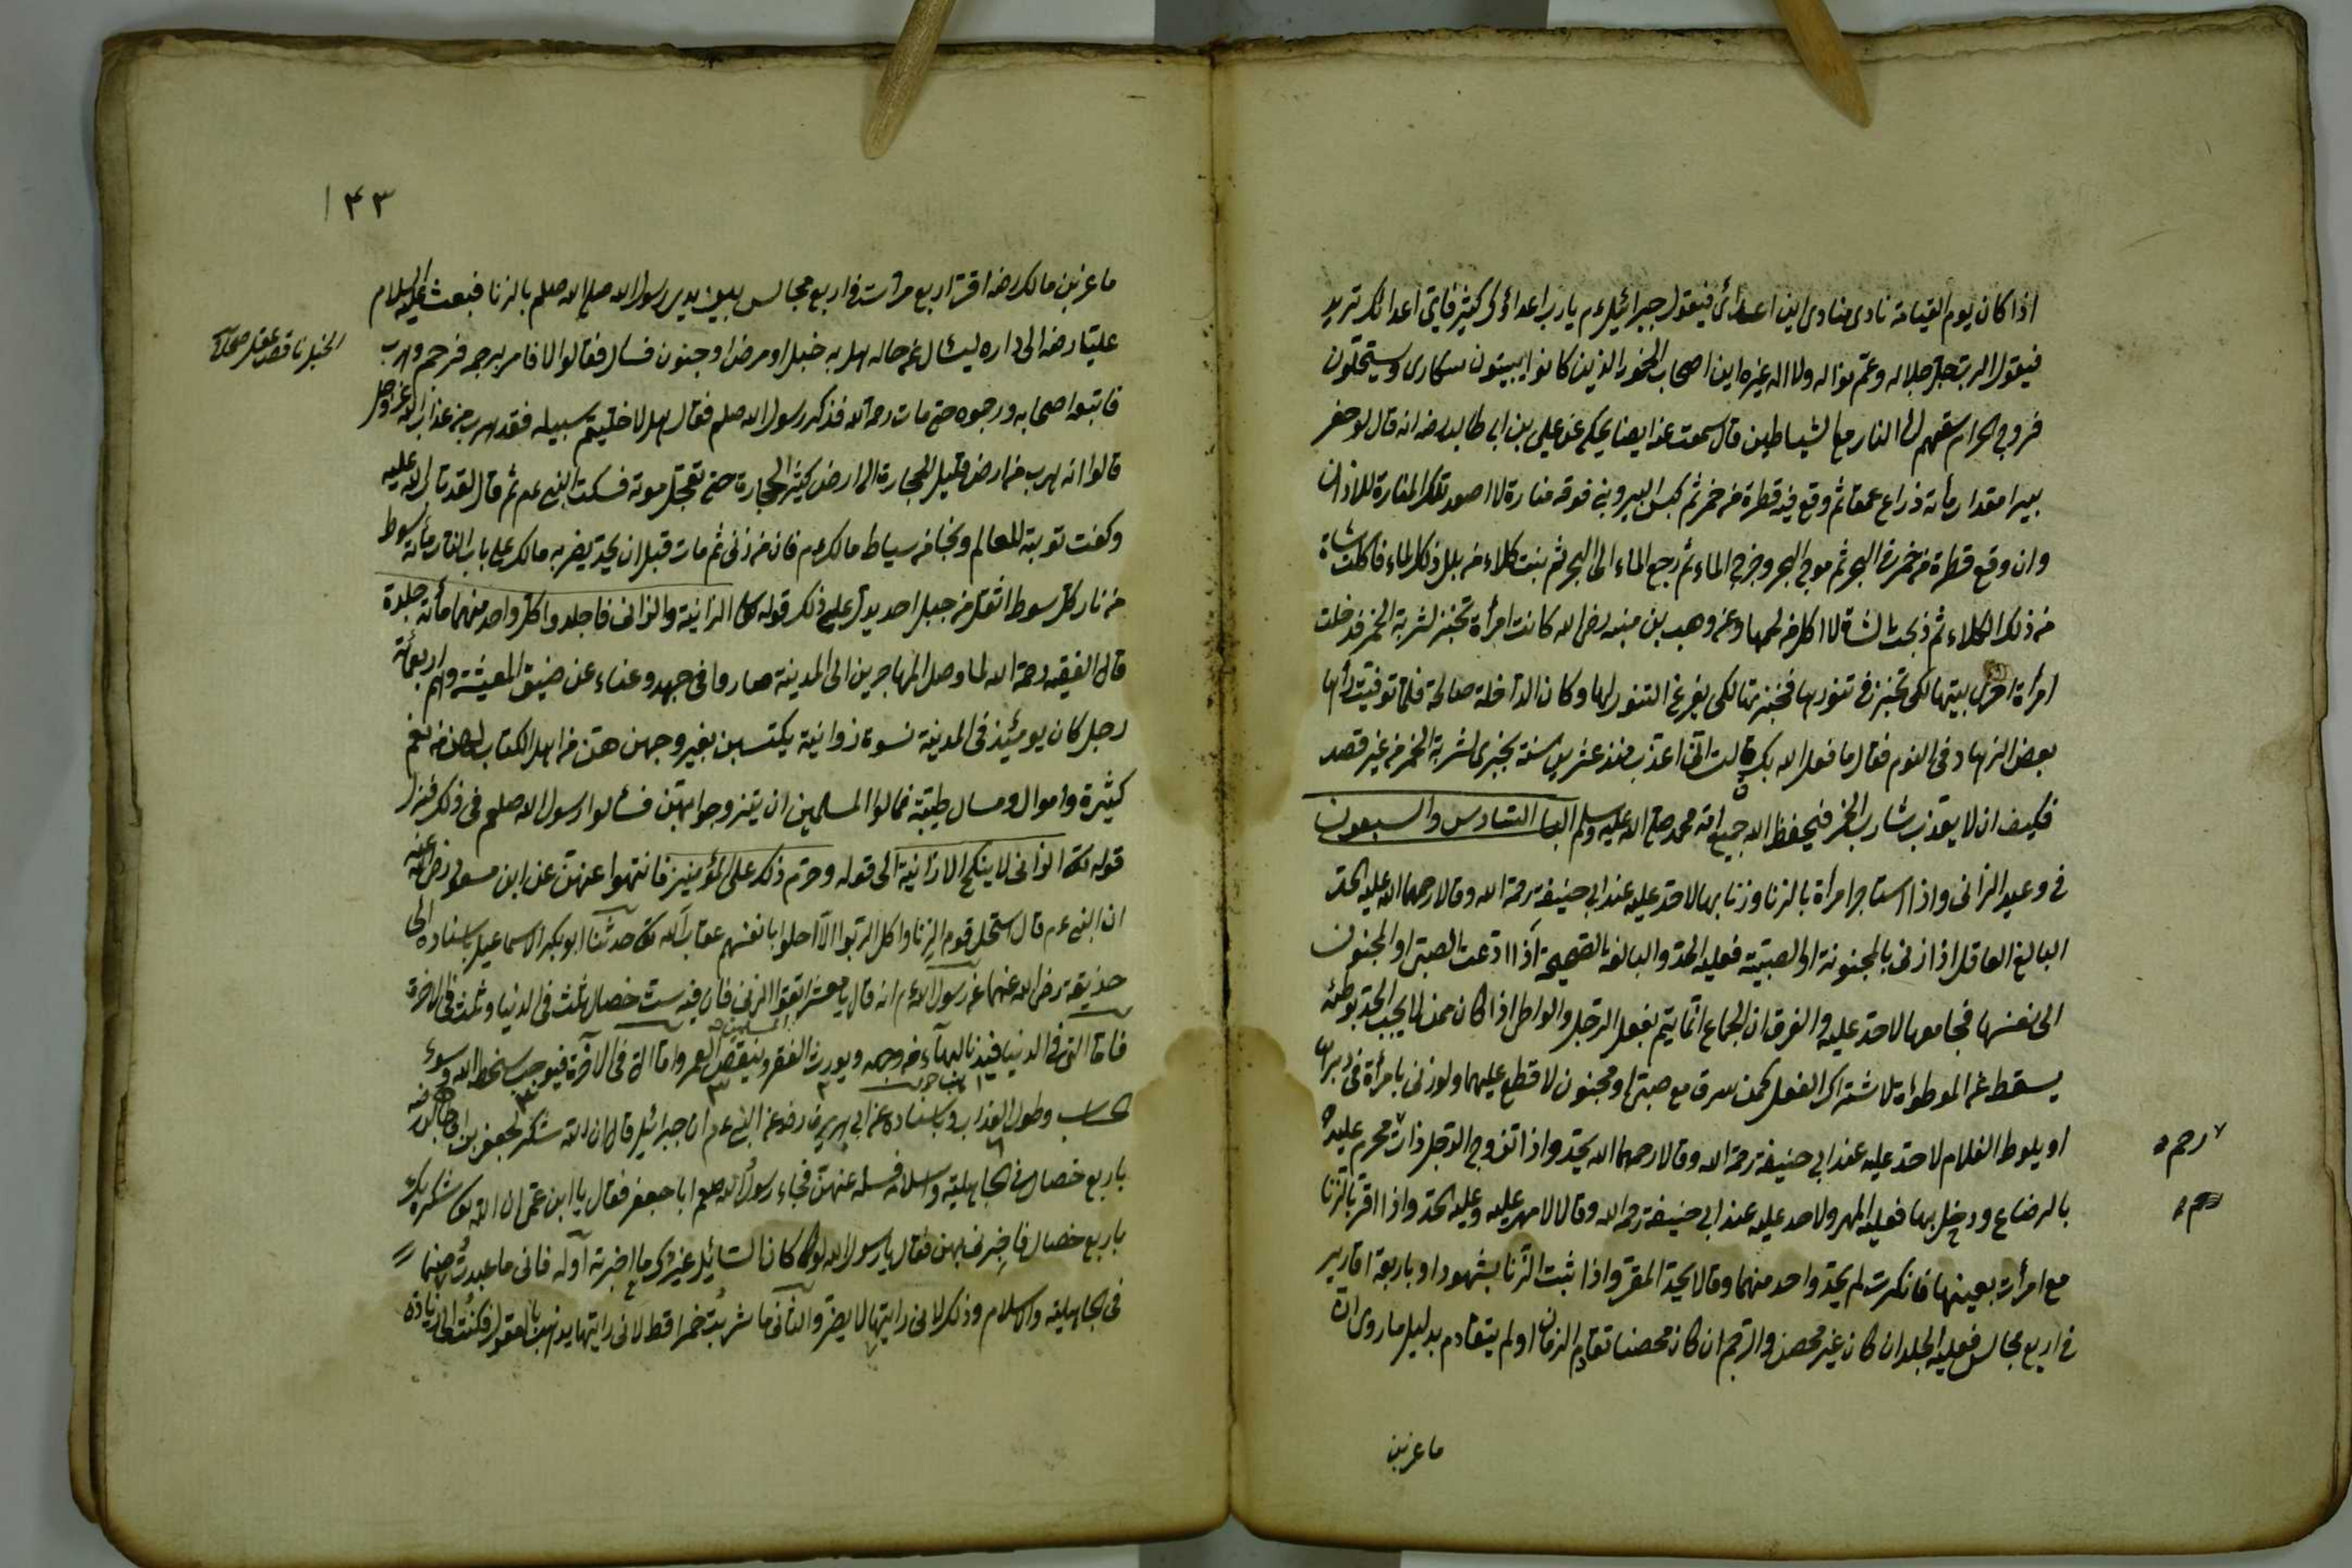 اذا كان يوم القيامة نادى منادى اين اعدائى فيقول جبرائيل عم يارب اعداؤك كثير فاى اعدائك تريد
فيقول الرب جل جلاله وعم نواله ولا اله غيره اين اصحاب الخمور الذين كانوا يبيتون سكارى ويستحلون
فروج الحرام سقهم الى النار مع الشياطين قال سمعت عنه ايضا يحكى عن على بن ابى طالب رضه انه قال لو حفر
بيرا مقدار مأته ذراع عمقا ثم وقع فيه قطرة من خمر ثم كبس البير وبنى فوقه منارة لا اصعد تلك المنارة للاذان
وان وقع قطرة من خمر فى البحر ثم موج البحر وخرج الماء ثم رجع الماء الى البحر ثم بنت كلاء من بلل ذلك الماء فاكلت شاة
من ذلك الكلاء ثم ذبحت الشاة لا اكل من لحمها وعن وهب بن منبه رضى الله كانت امرأة تخبز لشربة الخمر فدخلت
امرأة اخرى بيتها لكى تخبز فى تنورها فخبزتها لكى يفرغ التنور لها وكان الداخلة صالحة فلما توفيت رأها
بعض الزهاد فى النوم فقال ما فعل الله بك قالت انى اعذب منذ عشرين سنة بخبزى لشربة الخمر من غير قصد
فكيف ان لا يعذب شارب الخمر فيحفظ الله جميع امة محمد صلى الله عليه وسلم الباب السادس والسبعون
فى وعيد الزانى واذا استاجر امرأة بالزنا وزنا بها لا حد عليه عند ابى حنيفة رحمة الله وقالا رحمهما الله عليه الحد
البالغ العاقل اذا زنى بالمجنونة او الصبيية فعليه الحد والبالغة الصحيحة اذا ادعت الصبى او المجنون
الى نفسها فجامعها لا حد عليه والفرق ان الجماع انما يتم بفعل الرجل والواطى اذا كان ممن لا يجب الحد بوطئه
يسقط عن الموطؤة لاشتراك الفعل كمن سرق مع صبى او مجنون لا قطع عليهما ولو زنى بامرأة فى دبرها
او يلوط الغلام لا حد عليه عند ابى حنيفة رحمة الله وقالا رحمهما الله يحد واذا تزوج الرجل ذات محرم عليه
بالرضاع ودخل بها فعليه المهر ولا حد عليه عند ابى حنيفة رحم الله وقالا لا مهر عليه وعليه الحد واذا اقر بالزنا
مع امرأت بعينها فانكرت لم يحد واحد منهما وقالا يحد المقر واذا ثبت الزنا بشهود او باربعة اقارير
فى اربع مجالس فعليه الجلد ان كان غير محصن والرجم ان كان محصنا تقادم الزمان او لم يتقادم بدليل ما روى ان
ماعز بن
رحم
١٤٣
ماعز بن مالك رضه اقر اربع مرات فى اربع مجالس بين يدى رسول الله صلى الله صلعم بالزنا فبعث عليه السلام
عليا رضه الى داره ليسئال عن حاله هل به خبل او مرض او جنون فسال فقالوا لا فامر برجمه فرجم وهرب
فاتبعوا اصحابه ورجموه حتى مات رحمه الله فذكر رسول الله صلعم فقال هلا خليتم سبيله فقد هرب من عذاب الله عز وجل
قالوا انه هرب من ارض قليل الحجارة الى ارض كثير الحجارة حتى تعجل موته فسكت النبى عم ثم قال لقد تاب الله عليه
وكفت توبته للعالم ونجا من سياط مالك عم فان من زنى ثم مات قبل ان يحد يضربه مالك على باب النار مأته سوط
من نار كل سوط اثقل من جبل احد يدل على ذلك قوله تعا الزانية والزانى فاجلدوا كل واحد منهما مأئة جلدة
قال الفقيه رحمة الله لما وصل المهاجرين الى المدينة صاروا فى جهد وعناء عن ضيق المعيشة وهم اربعمائة
رجل كان يومئذ فى المدينة نسوة زوانية يكتسبن بفيروجهن هن من اهل الكتاب لهن من نعم
كثيرة واموال ومسال طيبة فمالوا المسلمين ان يتزوجوا بهن فسألوا رسول الله صلعم فى ذلك فنزل
قوله تعا الزانى لا ينكح الا زانية الى قوله وحرم ذلك على المؤمنين فانتهوا عنهن عن ابن مسعود رض الله عنه
ان النبى عم قال استحل قوم الزنا واكل الربوا الا احلوا بانفسهم عقاب الله تعا حدثنا ابو بكر الاسماعيل باسناده الى
حذيفة رضى الله عنهما عن رسول الله عم انه قال يا معشر المسلمين اتقوا الزنى فان فيه ست خصال ثلث فى الدنيا وثلث فى الاخرة
فاما التى فى الدنيا فيذ البهاء من وجهه ويورث الفقر وينقص العمر واما التى فى الاخرة فيوجب سخط الله وسوء
الحساب وطول العذاب وباسناده عن ابى هريرة رضه عن النبى عم ان جبرائيل قال ان الله شكر لجعفر بن ابى طالب رضه
باربع خصال فى الجاهلية واسلامه فسله عنهن فجاء رسول الله صلعم ابا جعفر فقال يا ابن عم ان الله تعا شكر بك
باربع خصال فاخبرنى بهن فقال يا رسول الله لو كان السائل غيرك ما اخبرته اوله فانى ما عبدت صنما
فى الجاهلية والاسلام وذلك لانى رايتها لا يضر والثانى ما شربت خمرا قط لانى رايتها يذهب بالعقول فكنت الى زيادة